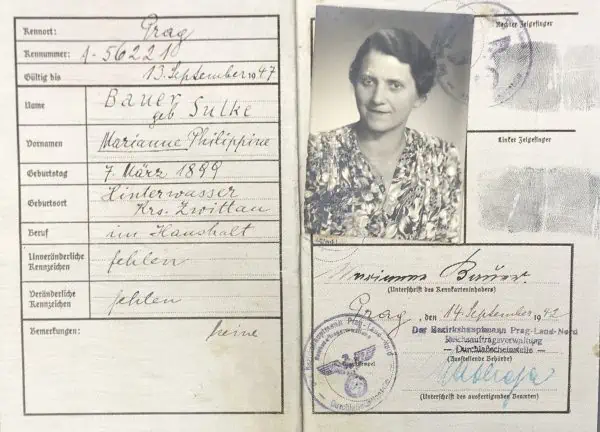 Kennort: Prag
Kennummer: A-562210
Gültig bis 13. September 1947
Name Bauer
geb Sulke
Vornamen Marianne Philippine
Geburtstag 7. März 1899
Geburtsort Hinterwasser
Krs. Zwittau
Beruf im Haushalt
Unveränderliche Kennzeichen fehlen
Veränderliche Kennzeichen fehlen
Bemerkungen: keine
Rechter Zeigefinger
Linker Zeigefinger
Marianne Bauer.
(Unterschrift des Kennkarteninhabers)
Prag, den 14. September 1942
Der Bezirkshauptmann Prag-Land-Nord
Reichsauftragsverwaltung
— Durchlaßscheinstelle —
(Ausstellende Behörde)
(Unterschrift des ausfertigenden Beamten)